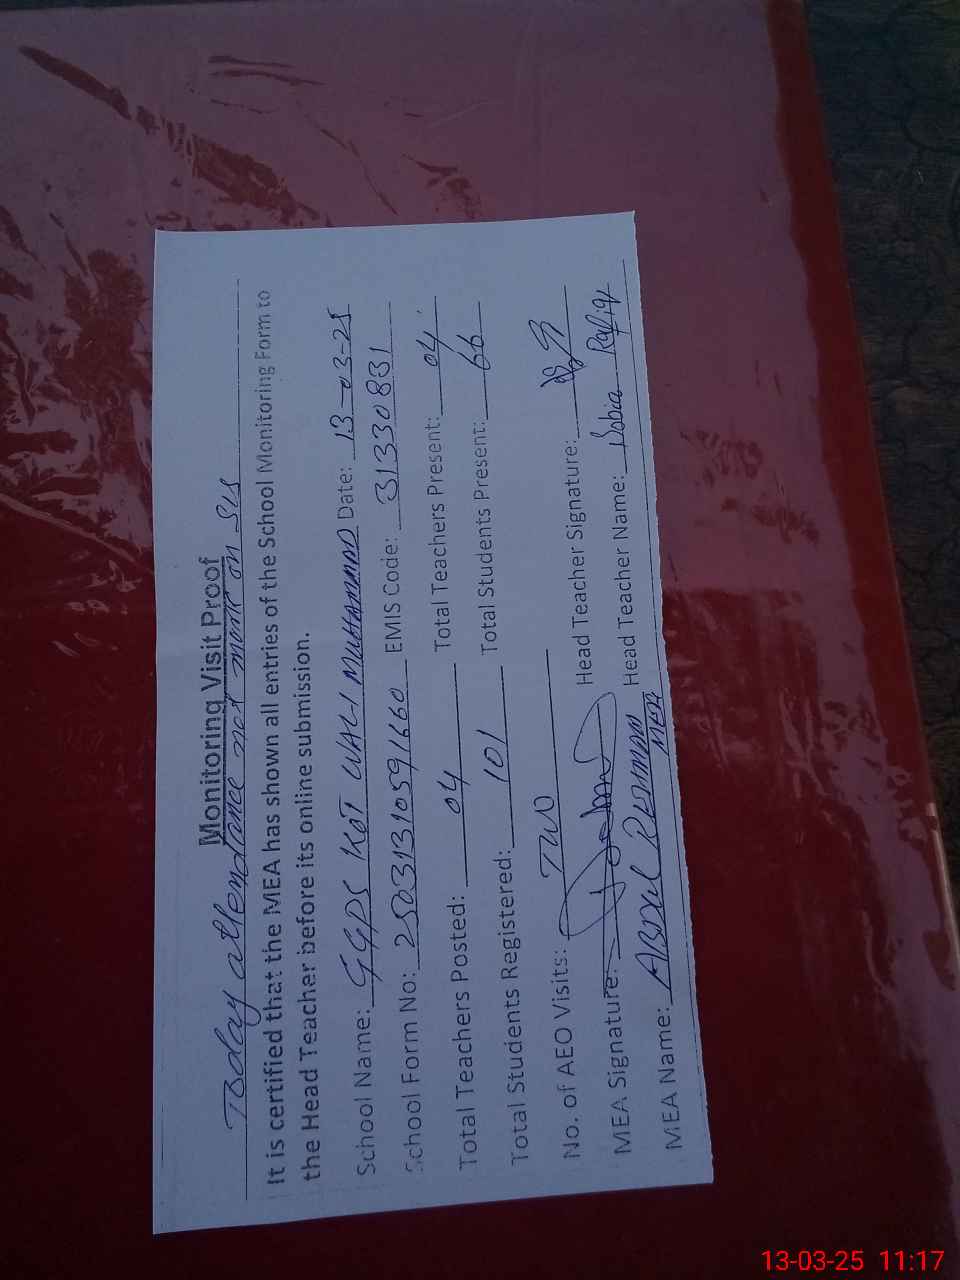 Monitoring Visit Proof
Today attendance not mark on SIS
It is certified that the MEA has shown all entries of the School Monitoring Form to
the Head Teacher before its online submission.
School Name: GGPS KOT WALI MUHAMMAD Date: 13-03-25
School Form No: 25031310591660 EMIS Code: 31330831
Total Teachers Posted: 04 Total Teachers Present: 04
Total Students Registered: 101 Total Students Present: 66
No. of AEO Visits: TWO
MEA Signature: Head Teacher Signature:
MEA Name: ABDUL REHMAN MEA Head Teacher Name: Sobia Rafiq
13-03-25 11:17